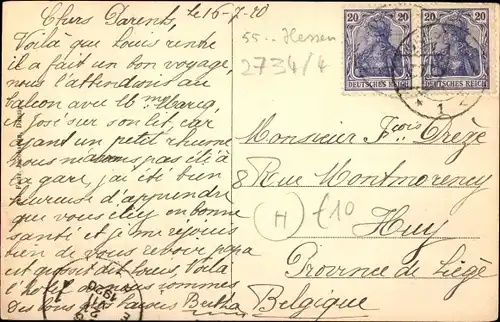 Chers Parents, le 16-7-20
Voilà que Louis rentre
il a fait un bon voyage,
nous l'attendions au
balcon avec Mme
et José sur son lit, car
ayant un petit rhume
nous n'avons pas été à
la gare, j'ai été bien
heureuse d'apprendre
que vous étiez en bonne
santé et je me réjouis
bien de vous revoir, papa
est grossi dit Louis, Voilà
l'hôtel nous sommes
Des bons baisers Bertha
55.. Hessen
2734/4
20 20
DEUTSCHES REICH
20 20
DEUTSCHES REICH
* 1
Monsieur Fçois Drèze
8 Rue Montmorency
Huy
Province de Liège
Belgique
(H) £10